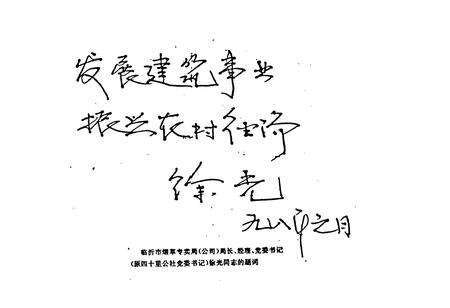 发展建筑事业
振兴农村经济
徐光
九八年元月
临沂市烟草专卖局(公司)局长、经理、党委书记
(原四十里公社党委书记)徐光同志的题词